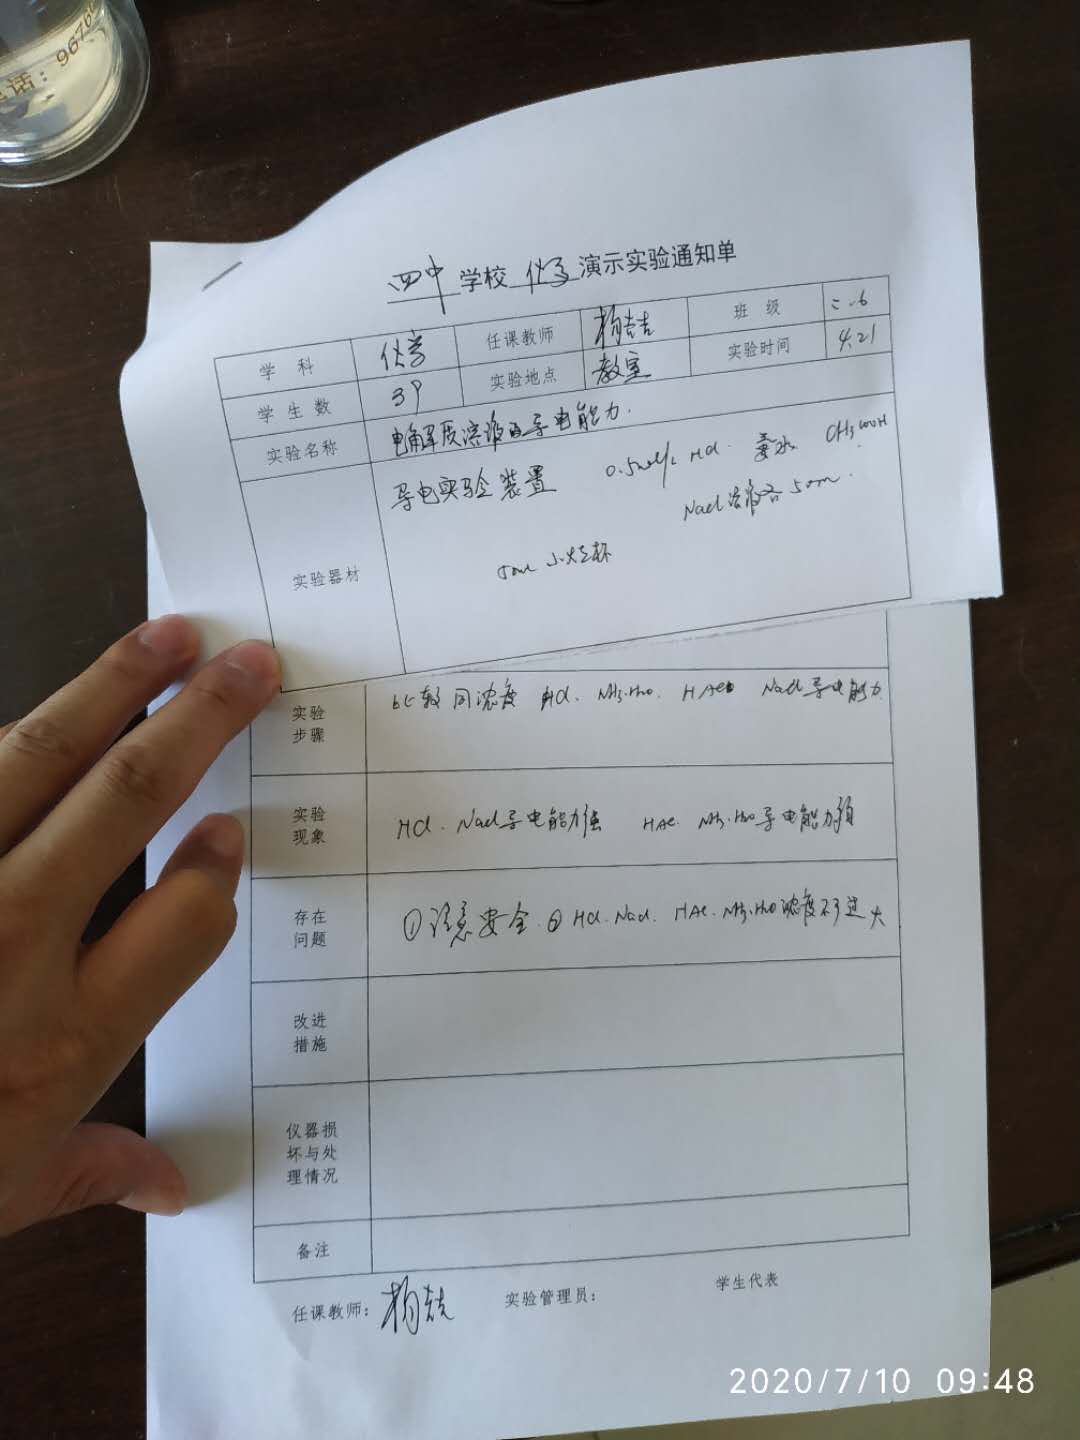 话: 9676
四中 学校 化学 演示实验通知单
学 科 化学 任课教师 杨喆 班 级 二.6
学 生 数 39 实验地点 教室 实验时间 4.21
实验名称 电解质溶液的导电能力.
实验器材 导电实验装置 0.5mol/L HCl. 氨水 CH3COOH
NaCl溶液各50ml.
50ml 小烧杯
实验
步骤 比较同浓度 HCl. NH3·H2O. HAc NaCl导电能力.
实验
现象 HCl. NaCl导电能力强 HAc. NH3·H2O导电能力弱
存在
问题 ①注意安全.② HCl. NaCl. HAc. NH3·H2O浓度不过大
改进
措施
仪器损
坏与处
理情况
备注
任课教师: 杨喆 实验管理员: 学生代表
2020/7/10 09:48